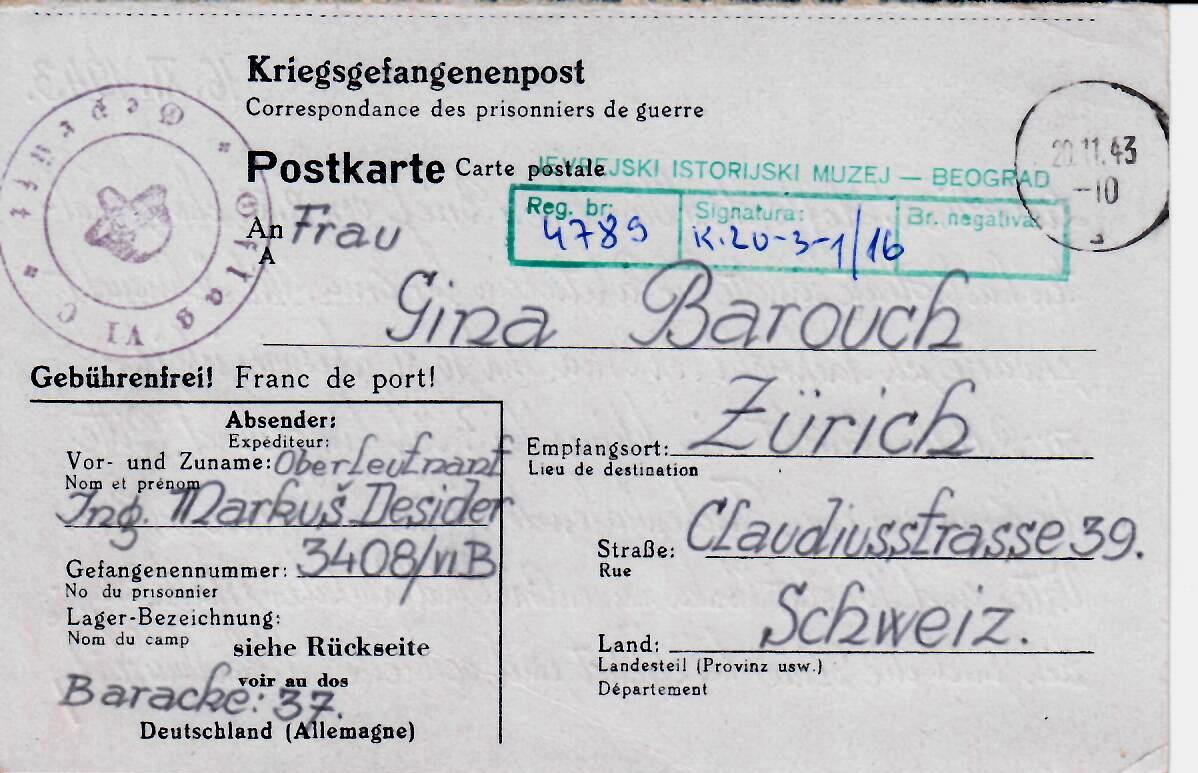 Kriegsgefangenenpost
Correspondance des prisonniers de guerre
Postkarte Carte postale
JEVREJSKI ISTORIJSKI MUZEJ — BEOGRAD
Reg. br: 4789
Signatura: K.20-3-1/16
Br. negativa:
20.11.43
-10
Geprüft
Oflag VI C
An Frau
A
Gina Barouch
Gebührenfrei! Franc de port!
Absender:
Expéditeur:
Vor- und Zuname: Oberleutnant
Nom et prénom
Ing. Markuš Desider
Gefangenennummer: 3408/VI.B
No du prisonnier
Lager-Bezeichnung:
Nom du camp
siehe Rückseite
voir au dos
Baracke: 37.
Deutschland (Allemagne)
Empfangsort: Zürich
Lieu de destination
Straße: Claudiusstrasse 39.
Rue
Land: Schweiz.
Landesteil (Provinz usw.)
Département